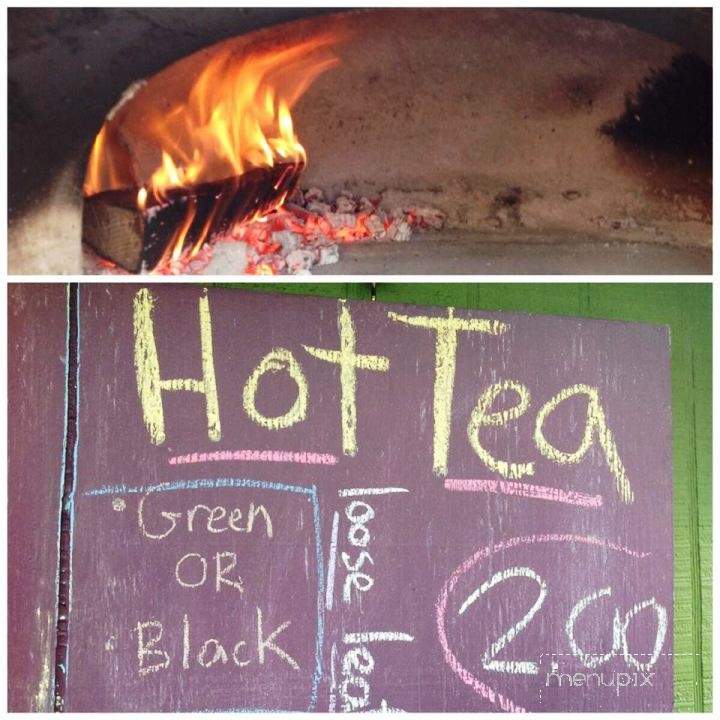 Hot Tea
• Green
OR
• Black
loose
leaf
2.00
menupix